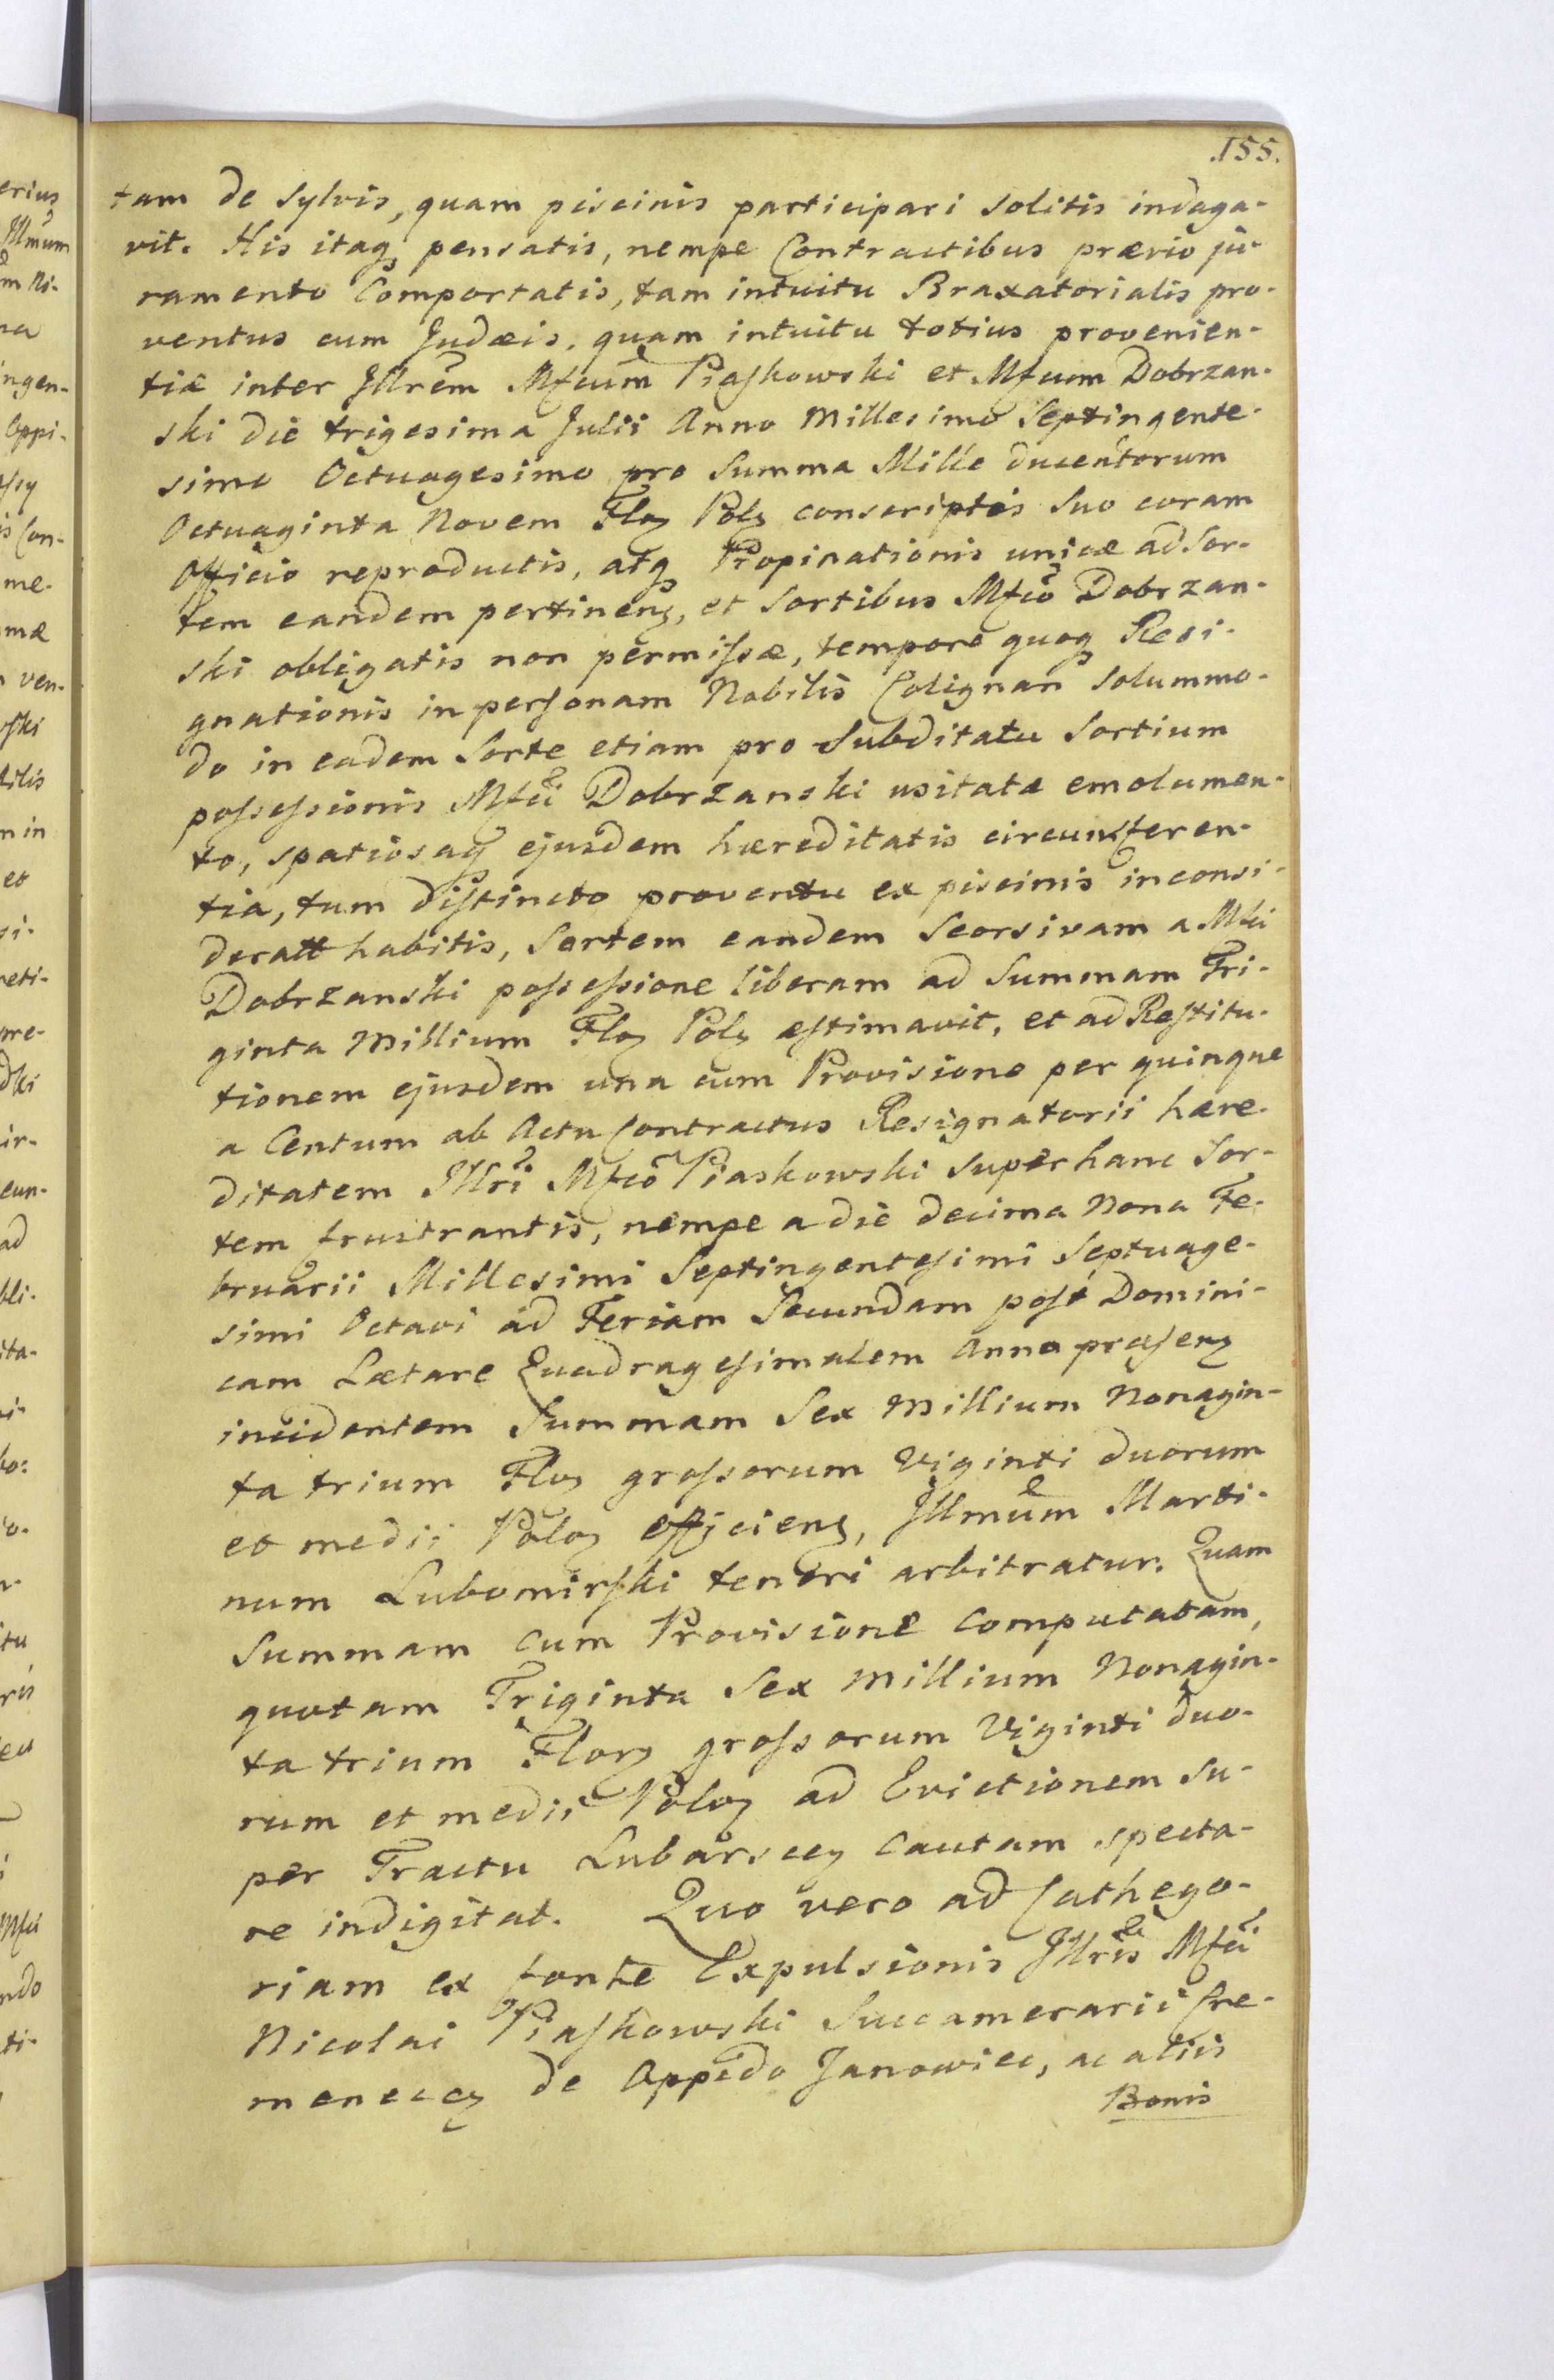 .155.
tam de Sylvis, quam piscinis participari solitis indaga-
vit. His itaq pensatis, nempe Contractibus prævio ju-
ramento Comportatis, tam intuitu Braxatorialis pro-
ventus cum Judæis, quam intuitu totius provenien-
tiæ inter Jllrem Mfcum Piaskowski et Mfcum Dobrzan-
ski die trigesima Julii Anno Millesimo Septingente-
simo Octuagesimo pro Summa Mille ducentorum
Octuaginta Novem Floz Polz conscriptis Suo coram
Officio reproductis, atq Propinationis unicæ ad Sor-
tem eandem pertinenz, et Sortibus Mfco Dobrzan-
ski obligatis non permissæ, tempore quoq Resi-
gnationis in personam Nobilis Colignan solummo-
do in eadem Sorte etiam pro Subditatu Sortium
possessionis Mfci Dobrzanski usitatæ emolumen-
to, spatiosaq ejusdem hæreditatis circumferen-
tia, tum distincto proventu ex piscinis in consi-
deratt habitis, Sortem eandem Seorsivam a Mfci
Dobrzanski possessione liberam ad Summam Tri-
ginta Millium Floz Polz æstimavit, et ad Restitu-
tionem ejusdem una cum Provisione per quinque
a Centum ab Actu Contractus Resignatorii hære-
ditatem Jllri Mfco Piaskowski super hanc Sor-
tem frustrantis, nempe a die decima Nona Fe-
bruarii Millesimi Septingentesimi Septuage-
simi Octavi ad Feriam Secundam post Domini-
cam Lætare Quadragesimalem Anno præsenz
incidentem Summam Sex Millium Nonagin-
ta trium Floz grossorum Viginti duorum
et medii Poloz efficienz, Jllmum Marti-
num Lubomirski teneri arbitratur. Quam
Summam cum Provisione computatam,
quotam Triginta Sex Millium Nonagin-
ta trium Florz grossorum Viginti duo-
rum et medii Poloz ad Evictionem su-
per Tractu Lubarscey cautam specta-
re indigitat. Quo vero ad Cathego-
riam ex fonte Expulsionis Jllris Mfci
Nicolai Piaskowski Succamerarii Cre-
meneccz de Oppido Janowiec, ac aliis
Bonis